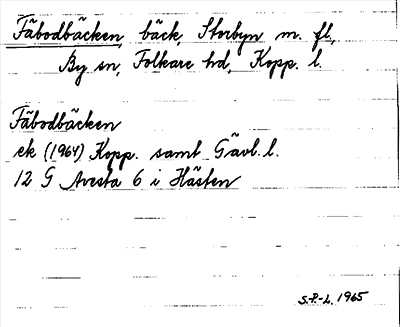 Fäbodbäcken, bäck, Storbyn m. fl.,
By sn, Folkare hd, Kopp. l.
Fäbodbäcken
ek (1964) Kopp. samt Gävl. l.
12 G Avesta 6 i Hästen
S.P.-L. 1965